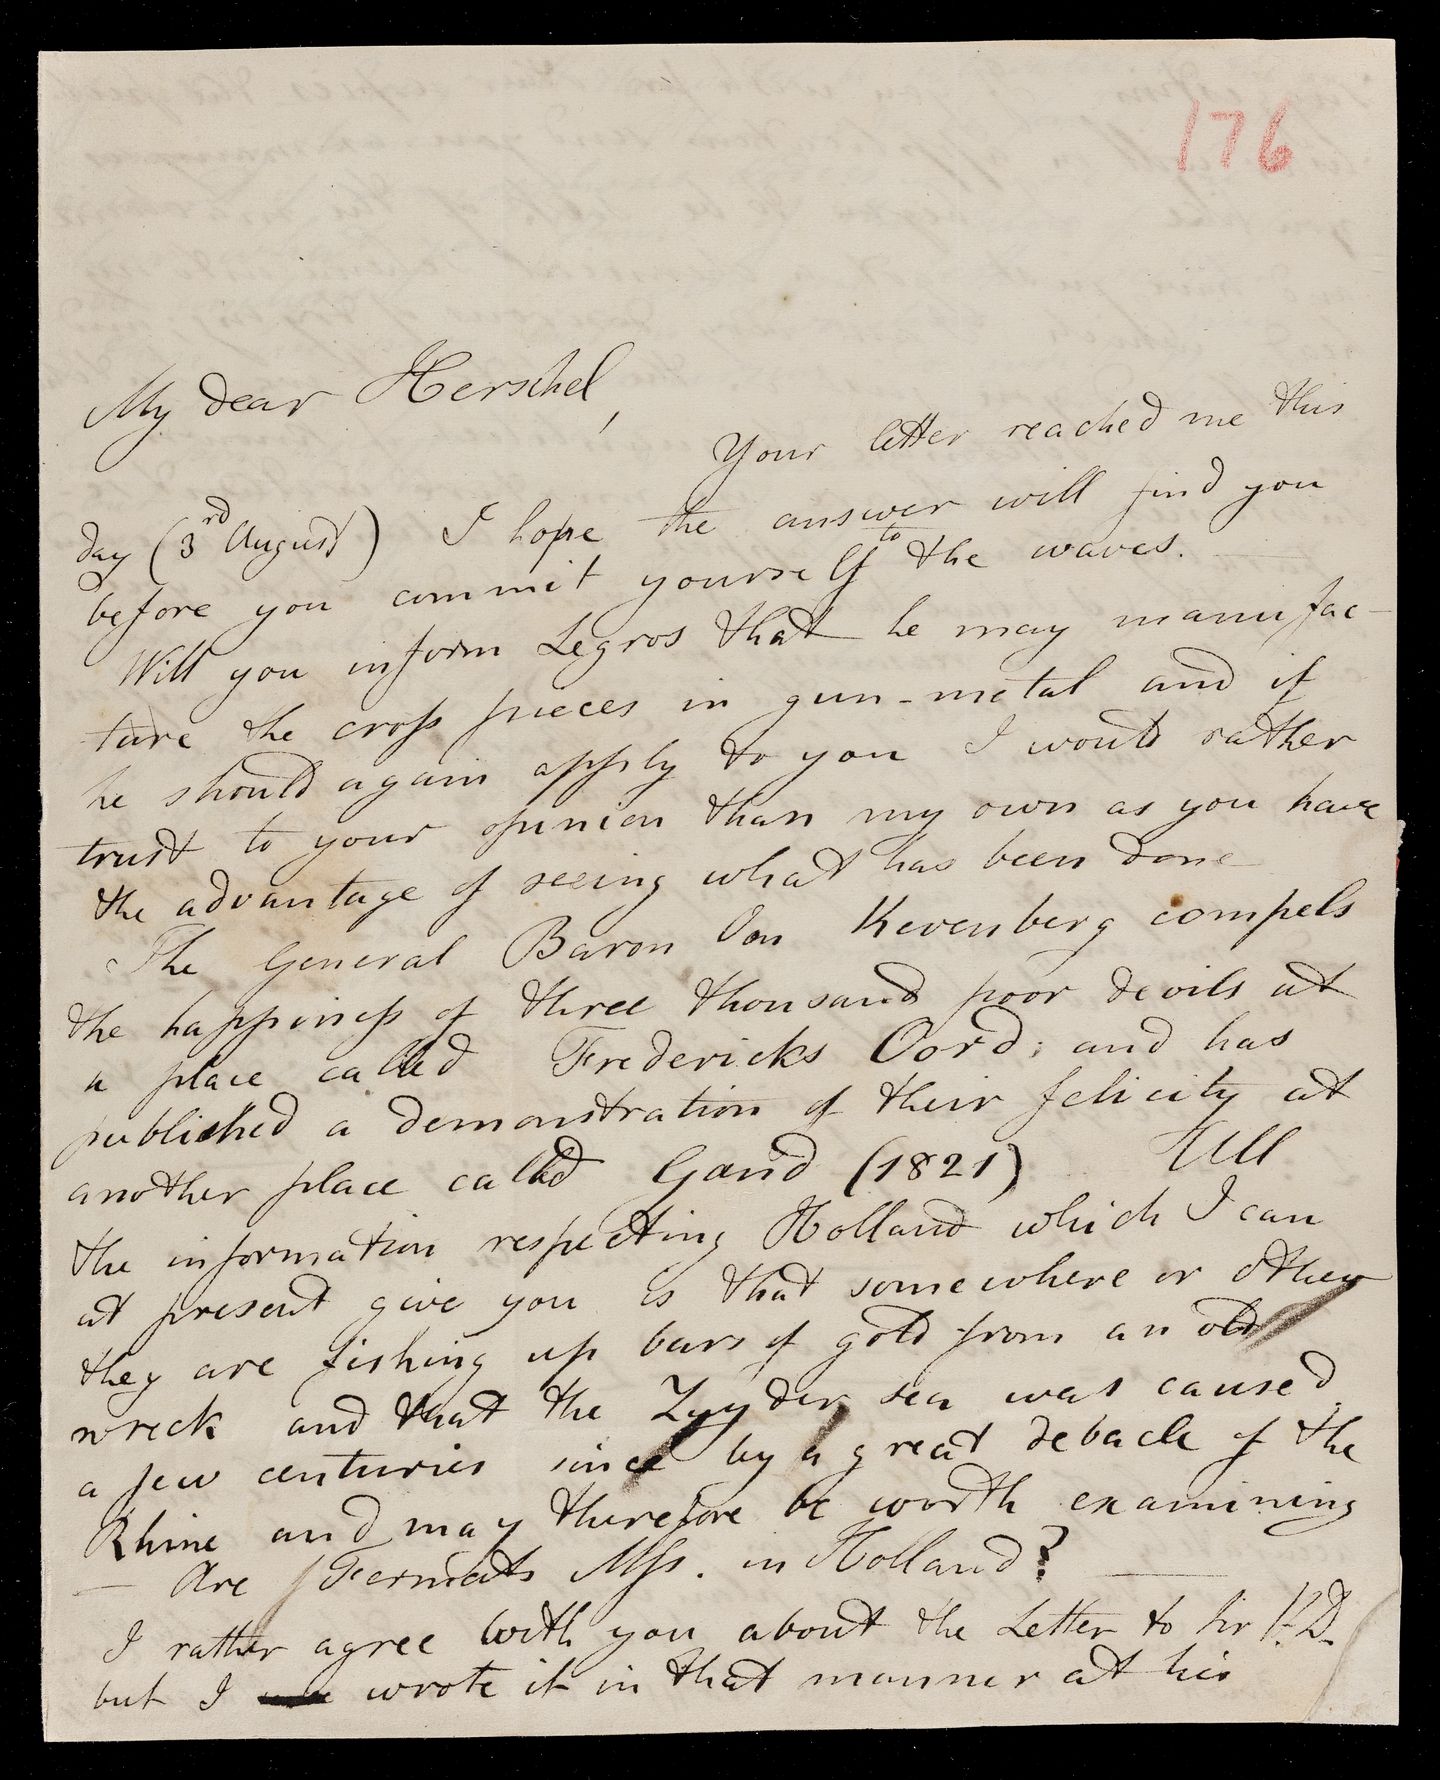 176
My dear Herschel,
Your letter reached me this
day (3rd August) I hope the answer will find you
before you commit yourself to the waves.
Will you inform Legros that he may manufac-
ture the cross pieces in gun-metal and if
he should again apply to you I would rather
trust to your opinion than my own as you have
the advantage of seeing what has been done
The General Baron Von Kevenberg compels
the happiness of three thousand poor devils at
a place called Fredericks Oord; and has
published a demonstration of their felicity at
another place called Gand (1821) All
the information respecting Holland which I can
at present give you is that somewhere or other
they are fishing up bars of gold from an old
wreck and that the Zuyder sea was caused
a few centuries since by a great debacle of the
Rhine and may therefore be worth examining
— Are Fermats Mss. in Holland? —
I rather agree with you about the Letter to Sir H.D.
but I wrote it in that manner at his